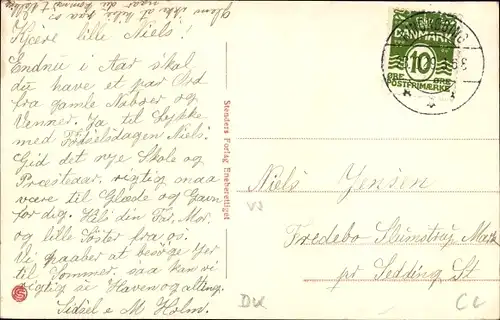 Glem ikke at hilse paa os
naar du kommer t
Kjære lille Niels!
Endnu i Aar skal
du have et par Ord
fra gamle Naboer og
Venner. Ja til Lykke
med Fødselsdagen Niels!
Gid det nye Skole og
rigtig maa
være til Glæde og Gavn
for dig. Hils din Far, Mor
og lille Søster fra os.
Vi haaber at besøge Jer
til Sommer, saa kan vi
rigtig se Haven og alting.
Sidsel e M Holm.
Stenders Forlag Eneberettiget
DANMARK
10
ØRE ØRE
POSTFRIMÆRKE
Niels Jensen
VS
Fredebo Slumstrup Mark
pr Sedding St
DK
CL